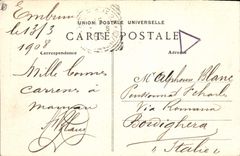 Embrun
le 13/3
1908
UNION POSTALE UNIVERSELLE
CARTE POSTALE
Correspondance
Adresse
Mille bonnes
caresses à
maman
Mr Alphonse Blanc
Pensionnat St Charles
Via Romana
Bordighera
Italie